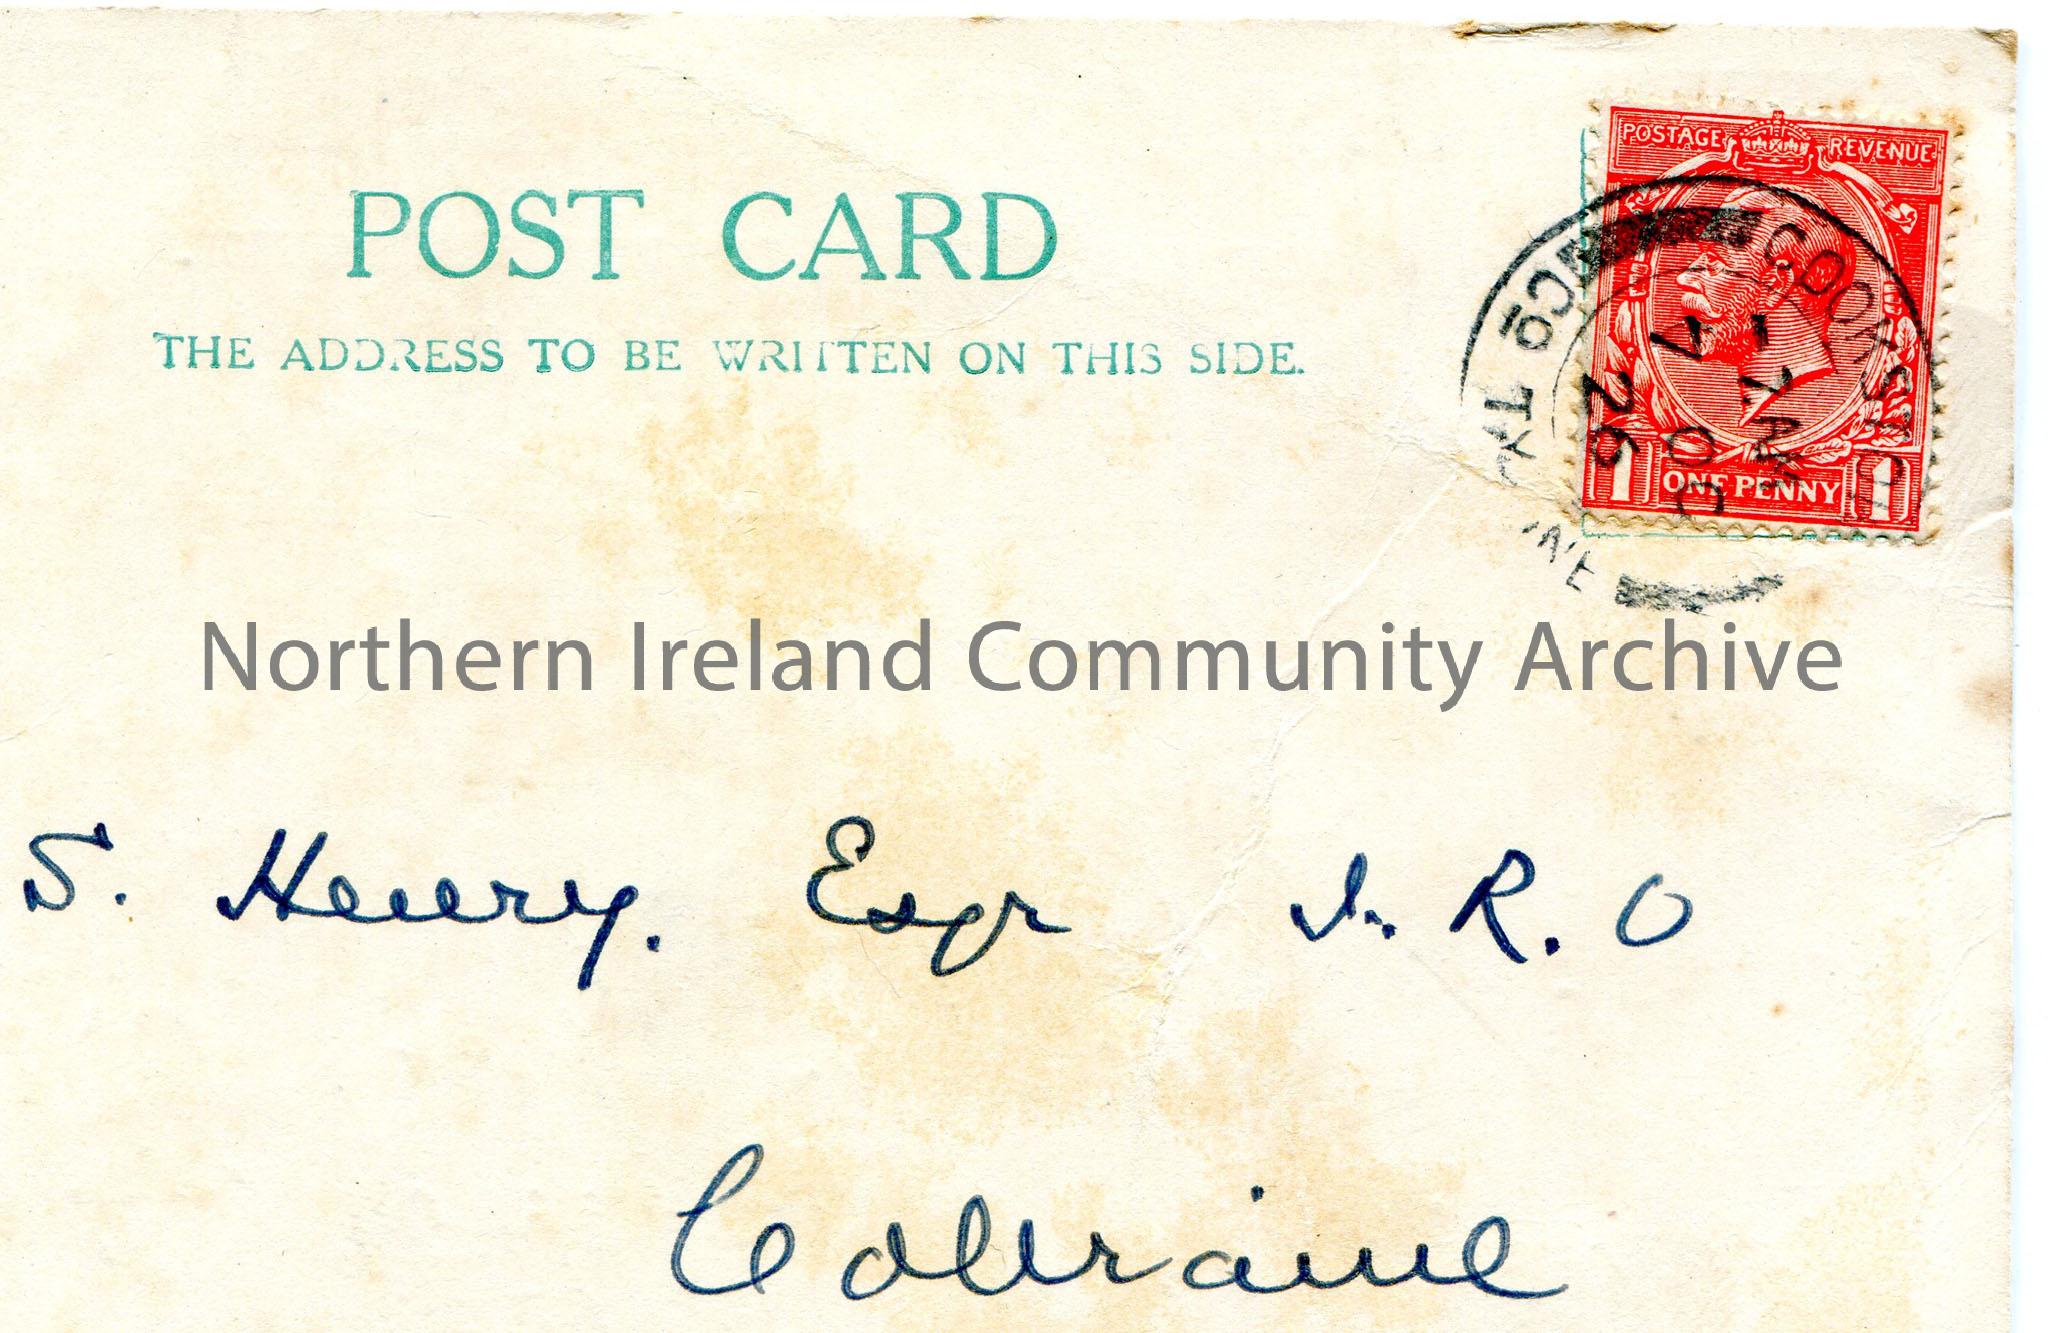 POST CARD
THE ADDRESS TO BE WRITTEN ON THIS SIDE.
POSTAGE REVENUE
ONE PENNY
1 1
COOKSTOWN
CO TYRONE
7 AM
26
Northern Ireland Community Archive
S. Henry. Esqr I. R. O
Coleraine